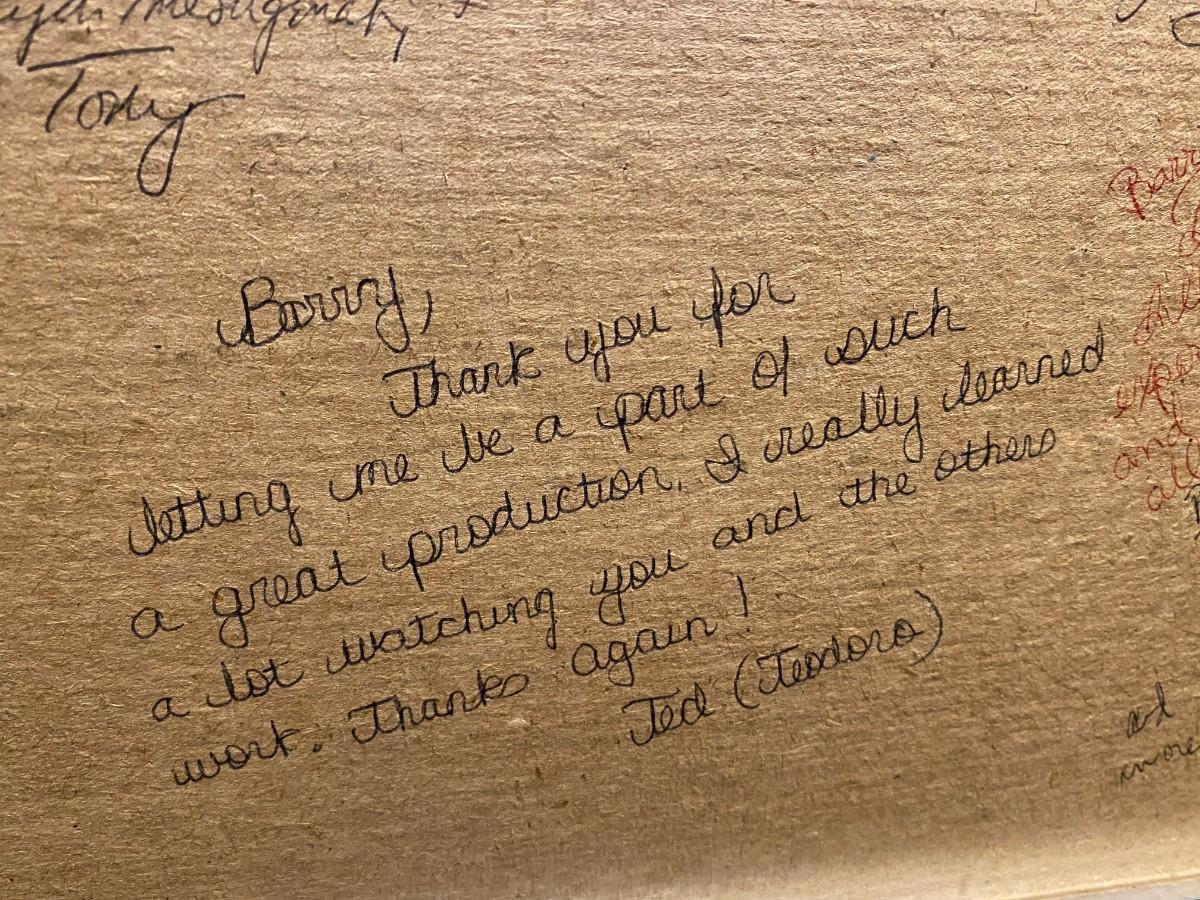 Tony
Barry,
Thank you for
letting me be a part of such
a great production. I really learned
a lot watching you and the others
work. Thanks again!
Ted (Teodoro)
Barr
expe
and
and
more